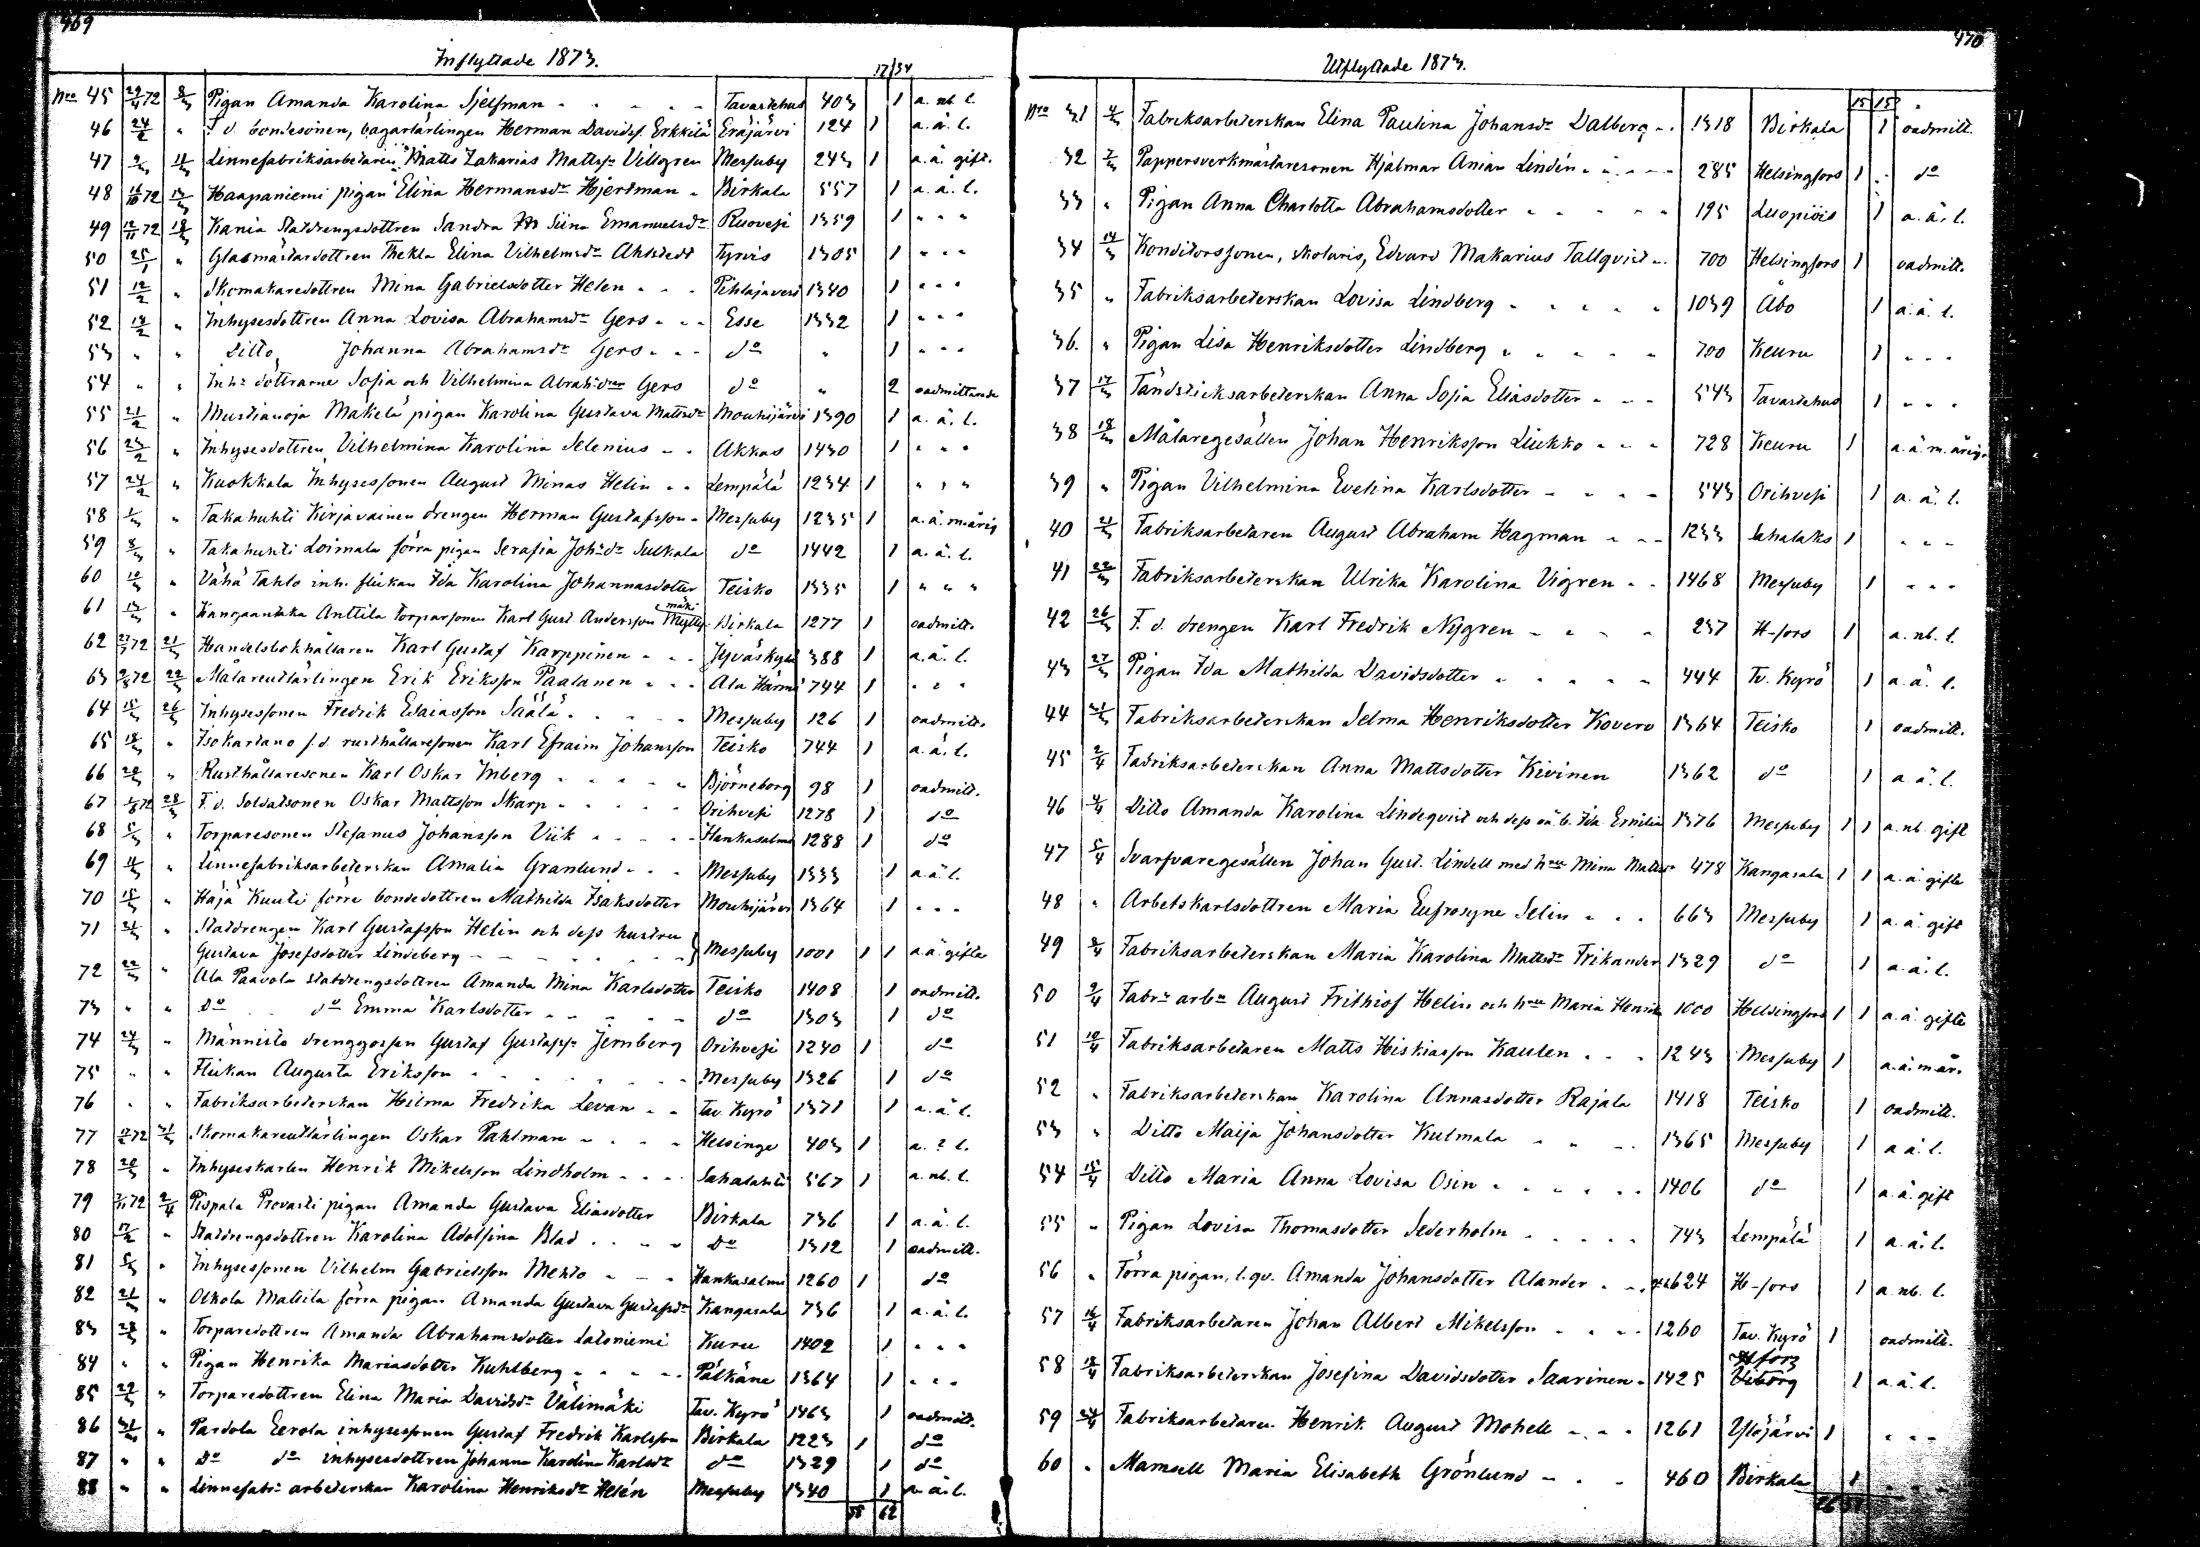 469
Inflyttade 1873.
17 34
Nro 45 29/11 72 8/3 Pigan Amanda Karolina Sjelfman Tavastehus 403 1 a. nb. l.
46 24/2 " F. d. bondesonen, bagarlärlingen Herman Davidss. Erkkilä Eräjärvi 124 1 a. ä. l.
47 9/3 11/3 Linnefabriksarbetaren Matts Zakarias Mattss. Villgren Messuby 243 1 a. ä. gift.
48 72 Haapaniemi pigan Elina Hermansdr Hjertman Birkala 557 1 a. ä. l.
49 72 Kania Statdrengsdottren Sandra Siina Emanuelsdr Ruovesi 1359 1 " " "
50 25/1 " Glasmästardottren Thekla Elina Vilhelmsdr Ahlstedt Tyrvis 1305 1 " " "
51 12/2 " Skomakaredottren Mina Gabrielsdotter Helen Pihlajavesi 1340 1 " " "
52 " Inhysesdottren Anna Lovisa Abrahamsdr Gers Esse 1332 1 " " "
53 " " Ditto Johanna Abrahamsdr Gers do " 1 " " "
54 " " Inhs döttrarne Sofia och Vilhelmina Abrah:drar Gers do " 2 oadmittande
55 21/2 " Mustianoja Mäkelä pigan Karolina Gustava Mattsdr Mouhijärvi 1390 1 a. ä. l.
56 23/2 " Inhysesdottren Vilhelmina Karolina Selenius Akkas 1430 1 " " "
57 24/2 " Kuokkala Inhysessonen August Minas Helin Lempälä 1234 1 " " "
58 1/3 " Takahuhti Kirjavainen drengen Herman Gustafsson Messuby 1235 1 a. ä. m.årig
59 8/3 " Takahuhti Loimala förra pigan Serafia Johsdr Sulkala do 1442 1 a. ä. l.
60 10/3 " Vähä Tahlo inh. flickan Ida Karolina Johannasdotter Teisko 1335 1 " " "
61 " Kangaantaka Anttila torparsonen Karl Gust. Andersson mäki Birkala 1277 1 oadmitt.
62 72 21/3 Handelsbokhållaren Karl Gustaf Karppinen Jyväskylä 388 1 a. ä. l.
63 72 22/3 Målarelärlingen Erik Eriksson Paalanen Ala Härmä 744 1 " " "
64 15/3 26/3 Inhysessonen Fredrik Esaiasson Säälä Messuby 126 1 oadmitt.
65 18/3 " Isokartano f.d. rusthållaresonen Karl Efraim Johansson Teisko 744 1 a. ä. l.
66 " Rusthållaresonen Karl Oskar Inberg Björneborg 98 1 oadmitt.
67 72 28/3 F. d. Soldatsonen Oskar Mattsson Skarp Orihvesi 1278 1 do
68 5/3 " Torparesonen Stefanus Johansson Viik Hankasalmi 1288 1 do
69 11/3 " Linnefabriksarbeterskan Amalia Granlund Messuby 1333 1 a. ä. l.
70 15/3 " Häjä Kuuti förre bondedottren Mathilda Isaksdotter Mouhijärvi 1364 1 " " "
71 21/3 " Statdrengen Karl Gustafsson Helin och dess hustru
Gustava Josefsdotter Lindeberg Messuby 1001 1 1 a. ä. gifta
72 22/3 " Ala Paavola statdrengsdottren Amanda Mina Karlsdotter Teisko 1408 1 oadmitt.
73 " " Do do Emma Karlsdotter do 1303 1 do
74 24/3 " Männistö drenggossen Gustaf Gustafss. Jernberg Orihvesi 1240 1 do
75 " " Flickan Augusta Eriksson Messuby 1326 1 do
76 " " Fabriksarbeterskan Hilma Fredrika Levan Tav. Kyrö 1371 1 a. ä. l.
77 72 31/3 Skomakarelärlingen Oskar Pahlman Helsinge 403 1 a. ? l.
78 " Inhyseskarlen Henrik Mikelsson Lindholm Sahalahti 567 1 a. nb. l.
79 72 2/4 Pispala Provasti pigan Amanda Gustava Eliasdotter Birkala 736 1 a. ä. l.
80 " Statdrengsdottren Karolina Adolfina Blad Do 1312 1 oadmitt.
81 " Inhysessonen Vilhelm Gabrielsson Mehto Hankasalmi 1260 1 do
82 21/3 " Olkola Mattila förra pigan Amanda Gustava Gustafsdr Kangasala 736 1 a. ä. l.
83 28/3 " Torparedottren Amanda Abrahamsdotter Saloniemi Kuru 1402 1 " " "
84 " " Pigan Henrika Mariasdotter Kuhlberg Pälkäne 1364 1 " " "
85 29/3 " Torparedottren Elina Maria Davidsdr Välimäki Tav. Kyrö 1463 1 oadmitt.
86 31/3 " Pardola Eerola inhysessonen Gustaf Fredrik Karlsson Birkala 1223 1 do
87 " " Do do inhysesdottren Johanna Karolina Karlsdr do 1329 1 do
88 " " Linnefabrs arbeterskan Karolina Henriksdr Helén Messuby 1340 1 a. ä. l.
35 62
470
Utflyttade 1873.
15 15
Nro 31 4/3 Fabriksarbeterskan Elina Paulina Johansdr Dalberg 1318 Birkala 1 oadmitt.
32 7/3 Pappersverkmästaresonen Hjalmar Anian Lindén 285 Helsingfors 1 do
33 " Pigan Anna Charlotta Abrahamsdotter 195 Luopiois 1 a. ä. l.
34 14/3 Konditorssonen, skolaris, Edvard Makarius Tallqvist 700 Helsingfors 1 oadmitt.
35 " Fabriksarbeterskan Lovisa Lindberg 1039 Åbo 1 a. ä. l.
36. " Pigan Lisa Henriksdotter Lindberg 700 Keuru 1 " " "
37 17/3 Tändsticksarbeterskan Anna Sofia Eliasdotter 543 Tavastehus 1 " " "
38 18/3 Målaregesällen Johan Henriksson Liukko 728 Keuru 1 a. ä. m. årig.
39 " Pigan Vilhelmina Evelina Karlsdotter 543 Orihvesi 1 a. ä. l.
40 21/3 Fabriksarbetaren August Abraham Hagman 1233 Sahalaks 1 " " "
41 22/3 Fabriksarbeterskan Ulrika Karolina Vigren 1468 Messuby 1 " " "
42 26/3 F. d. drengen Karl Fredrik Nygren 237 H-fors 1 a. nb. l.
43 27/3 Pigan Ida Mathilda Davidsdotter 444 Tv. Kyrö 1 a. ä. l.
44 31/3 Fabriksarbeterskan Selma Henriksdotter Kovero 1364 Teisko 1 oadmitt.
45 2/4 Fabriksarbeterskan Anna Mattsdotter Kivinen 1362 do 1 a. ä. l.
46 4/4 Ditto Amanda Karolina Lindeqvist och dess oä. b. Ida Emilia 1376 Messuby 1 1 a. nb. gift
47 5/4 Svarfvaregesällen Johan Gust. Lindell med hru Mina Mattsdr 478 Kangasala 1 1 a. ä. gifta
48 " Arbetskarlsdottren Maria Eufrosyne Selin 663 Messuby 1 a. ä. gift
49 8/4 Fabriksarbeterskan Maria Karolina Mattsdr Frikander 1329 do 1 a. ä. l.
50 9/4 Fabrs arbn August Frithiof Helin och hru Maria Henrika 1000 Helsingfors 1 1 a. ä. gifta
51 10/4 Fabriksarbetaren Matts Hiskiasson Kaulen 1243 Messuby 1 a. ä. m. år.
52 " Fabriksarbeterskan Karolina Annasdotter Rajala 1418 Teisko 1 oadmitt.
53 " Ditto Maija Johansdotter Kulmala 1365 Messuby 1 a. ä. l.
54 15/4 Ditto Maria Anna Lovisa Osin 1406 do 1 a. ä. gift
55 " Pigan Lovisa Thomasdotter Sederholm 743 Lempälä 1 a. ä. l.
56 " Förra pigan, l. qv. Amanda Johansdotter Alander 624 H-fors 1 a. nb. l.
57 16/4 Fabriksarbetaren Johan Albert Mikelsson 1260 Tav. Kyrö 1 oadmitt.
58 18/4 Fabriksarbeterskan Josefina Davidsdotter Saarinen 1425 Hfors Viborg 1 a. ä. l.
59 24/4 Fabriksarbetaren Henrik August Mohell 1261 Ylöjärvi 1 " " "
60 " Mamsell Maria Elisabeth Grönlund 460 Birkala 1 " " "